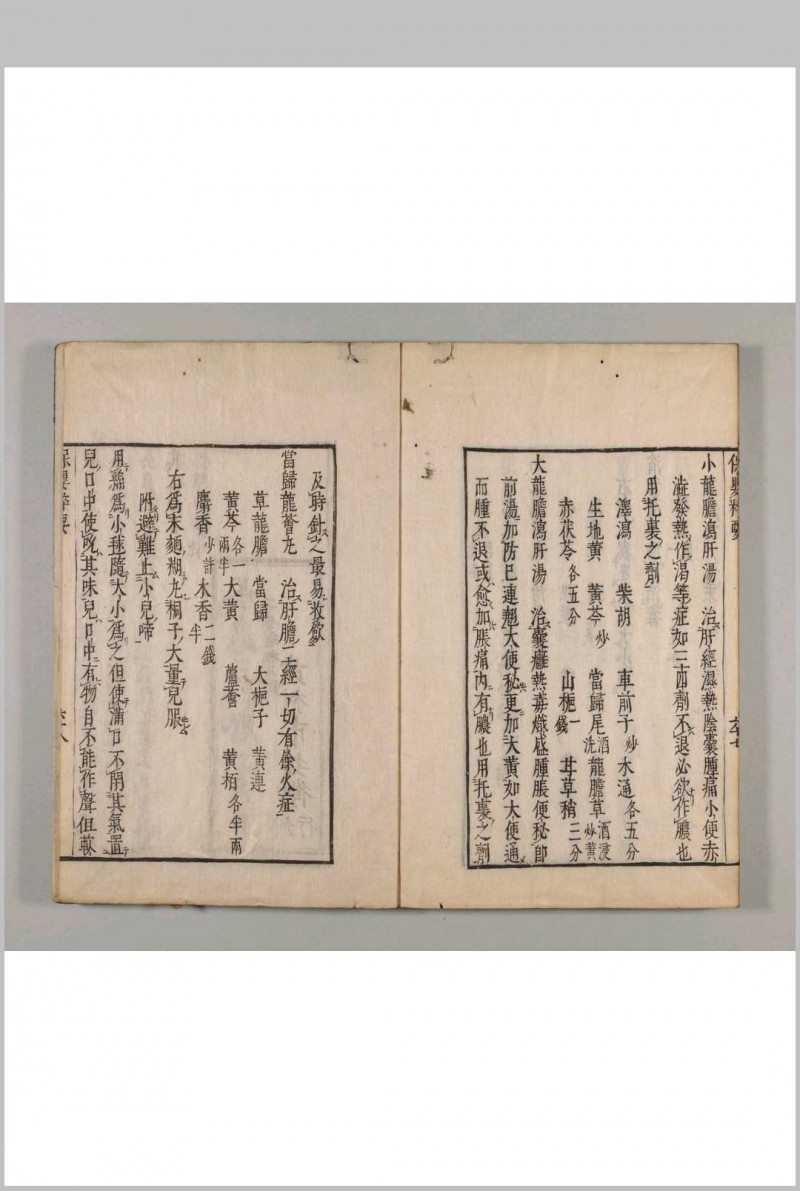 小龍膽瀉肝湯　治肝經濕熱陰囊腫痛小便赤
澁發熱作渴等症如三四劑不退必欲作膿也
用托裏之劑
澤瀉　柴胡　車前子炒　木通各五分
生地黃　黃芩炒　當歸尾酒洗　龍膽草酒浸炒黃
赤茯苓各五分　山梔一錢　甘草稍三分
大龍膽瀉肝湯　治囊癰熱毒熾盛腫脹便秘卽
前湯加防已連翹大便秘更加大黃如大便通
而腫不退或愈加脹痛內有膿也用托裏之劑
及時針之最易收歛
當歸龍薈丸　治肝膽二經一切有餘火症
草龍膽　當歸　大梔子　黃連
黃芩各一兩半　大黃　蘆薈　黃栢各半兩
麝香少許　木香二錢半
右爲末麵糊丸桐子大量兒服
附避難止小兒啼
用綿爲小毬隨大小爲之但使滿口不閉其氣置
兒口中使吮其味兒口中有物自不能作聲但軟